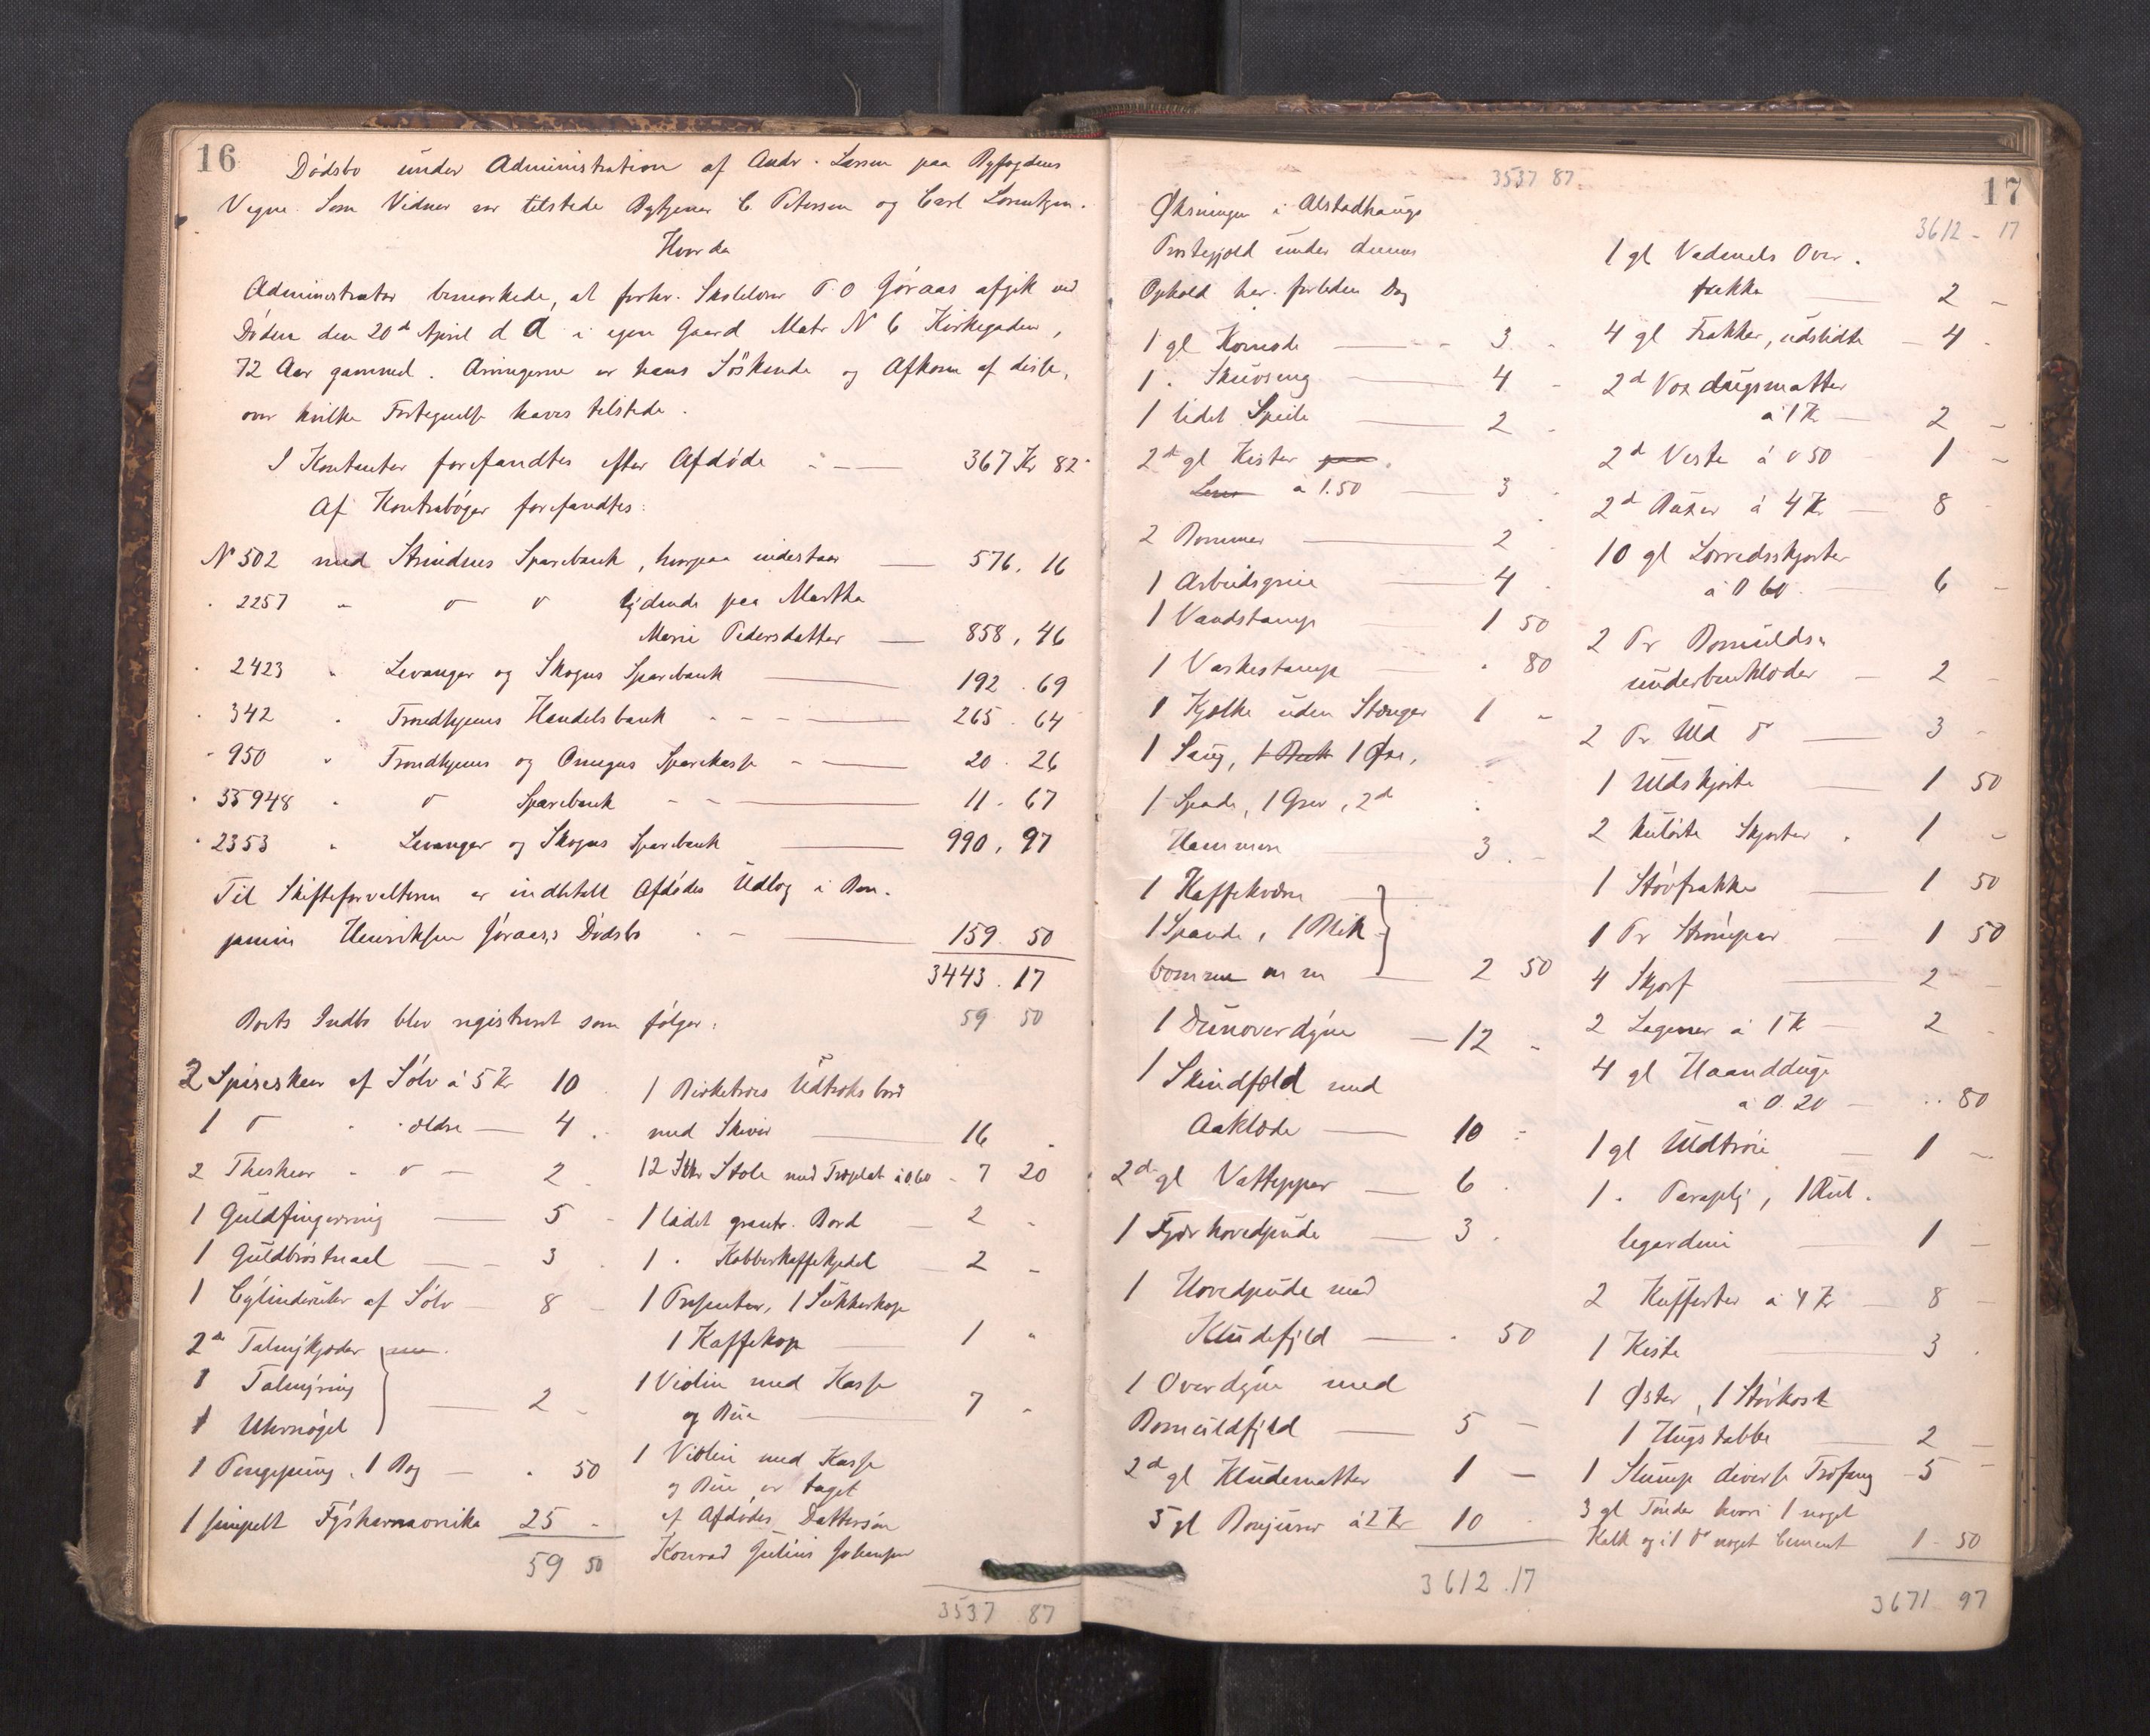 16
Dödsbo under Administration af Andr. Larsen paa Byfogdens
Vegne. Som Vidner var tilstede Bytjener C. Petersen og Carl Lorentzen.
Hvorda
Administrator bemærkede, at forhv. Skolelærer P. O Gjöraas afgik ved
Döden den 20d April d A i egen Gaard Matr N 6 Kirkegaden,
72 Aar gammel. Arvingerne er hans Söskende og Afkom af disse,
over hvilke Fortegnelse haves tilstede.
I Kontanter forefandtes efter Afdöde - — 367 Kr 82
Af Kontrabøger forefandtes:
N 502 med Strindens Sparebank, hvorpaa indestaar — 576. 16
" 2257 " d d lydende paa Martha
Marie Pedersdatter — 858, 46
" 2423 " Levanger og Skogns Sparebank — 192. 69
" 342 " Trondhjems Handelsbank — 265. 64
" 950 " Trondhjems og Omegns Sparekasse — 20. 26
" 35948 " d Sparebank — 11. 67
" 2353 " Levanger og Skogns Sparebank — 990, 97
Til Skifteforvalteren er indbetalt Afdödes Udlæg i Ben-
jamin Henriksen Gjöraas's Dödsbo — 159. 50
3443. 17
Boets Indbo blev registreret som fölger: 59 50
2 Spiseskeer af Sölv á 5 Kr 10
1 d " " ældre — 4
2 Theskeer " d — 2
1 Guldfingerring — 5 -
1 Guldbröstnaal — 3
1 Cylinderuhr af Sölv — 8 -
2de Talmikjæder
1 Talmiring
1 Uhrnögel — 2 -
1 Pengepung, 1 Bog — " 50
1 simpelt Fysharmonika 25 -
59 50
1 Birketræs Udtræksbord
med Skiver — 16
12 Stkr Stole med Træplat á 0 60 - 7 20
1 lidet grantr. Bord — 2 -
1 " Kobberkaffekjedel — 2 -
1 Presenter, 1 Sukkerkop
1 Kaffekop — 1 "
1 Violin med Kasse
og Bue — 7 -
1 Violin med Kasse
og Bue er taget
af Afdödes Dattersön
Konrad Julius Johansen
3537 87
17
3537 87
Øksningen i Alstadhaugs
Præstegjeld under dennes
Ophold her forleden Dag
1 gl Komode — 3 -
1 " Skuvseng — 4 -
1 lidet Speile — 2 -
2d gl Kister
á 1.50 — 3
2 Bommer — 2
1 Arbeidsgreie — 4
1 Vandstamp — 1 50
1 Vaskestamp — " 80
1 Kjælke uden Stænger 1 -
1 Saug, 1 Øxe,
1 Spade, 1 Grev, 2d
Hammere — 3 -
1 Kaffekværn —
1 Spande, 1 Blik
bomme m m — 2 50
1 Dunoverdyne — 12 -
1 Skindfæld med
Aaklæde — 10 -
2d gl Vattepper — 6
1 Fjær hovedpude — 3
1 Hovedpude med
Kludefyld — " 50
1 Overdyne med
Bomuldfyld — 5 -
2d gl Kludematter 1 —
5 gl Bonjurer á 2 Kr 10 -
3612. 17
3612 - 17
1 gl Vadmels Over-
frakke — 2 -
4 gl Frakker, udslidte — 4 -
2d Voxdugsmatter
á 1 Kr — 2 -
2d Veste á 0 50 1 -
2d Buxer á 4 Kr — 8 -
10 gl Lærredsskjorter
á 0 60 — 6 -
2 Pr Bomulds-
underbenklæder — 2 -
2 Pr Uld d — 3 -
1 Uldskjorte — 1 50
2 kulörte Skjorter . 1 -
1 Stövfrakke — 1 50
1 Pr Strömper — 1 50
4 Skjærf — 2 -
2 Lagener á 1 Kr — 2 -
4 gl Haandduge
á 0. 20 — " 80
1 gl Uldtröie — 1 -
1 " Paraply, 1 Rul-
legardin — 1 -
2 Kufferter á 4 Kr — 8 -
1 Kiste — 3 .
1 Øster, 1 Stövkost
1 Hugstabbe — 2 -
1 Slump diverse Træfang 5 -
3 gl Tönder hvori 1 noget
Kalk og i 1 d noget Cement 1 - 50
3671 97